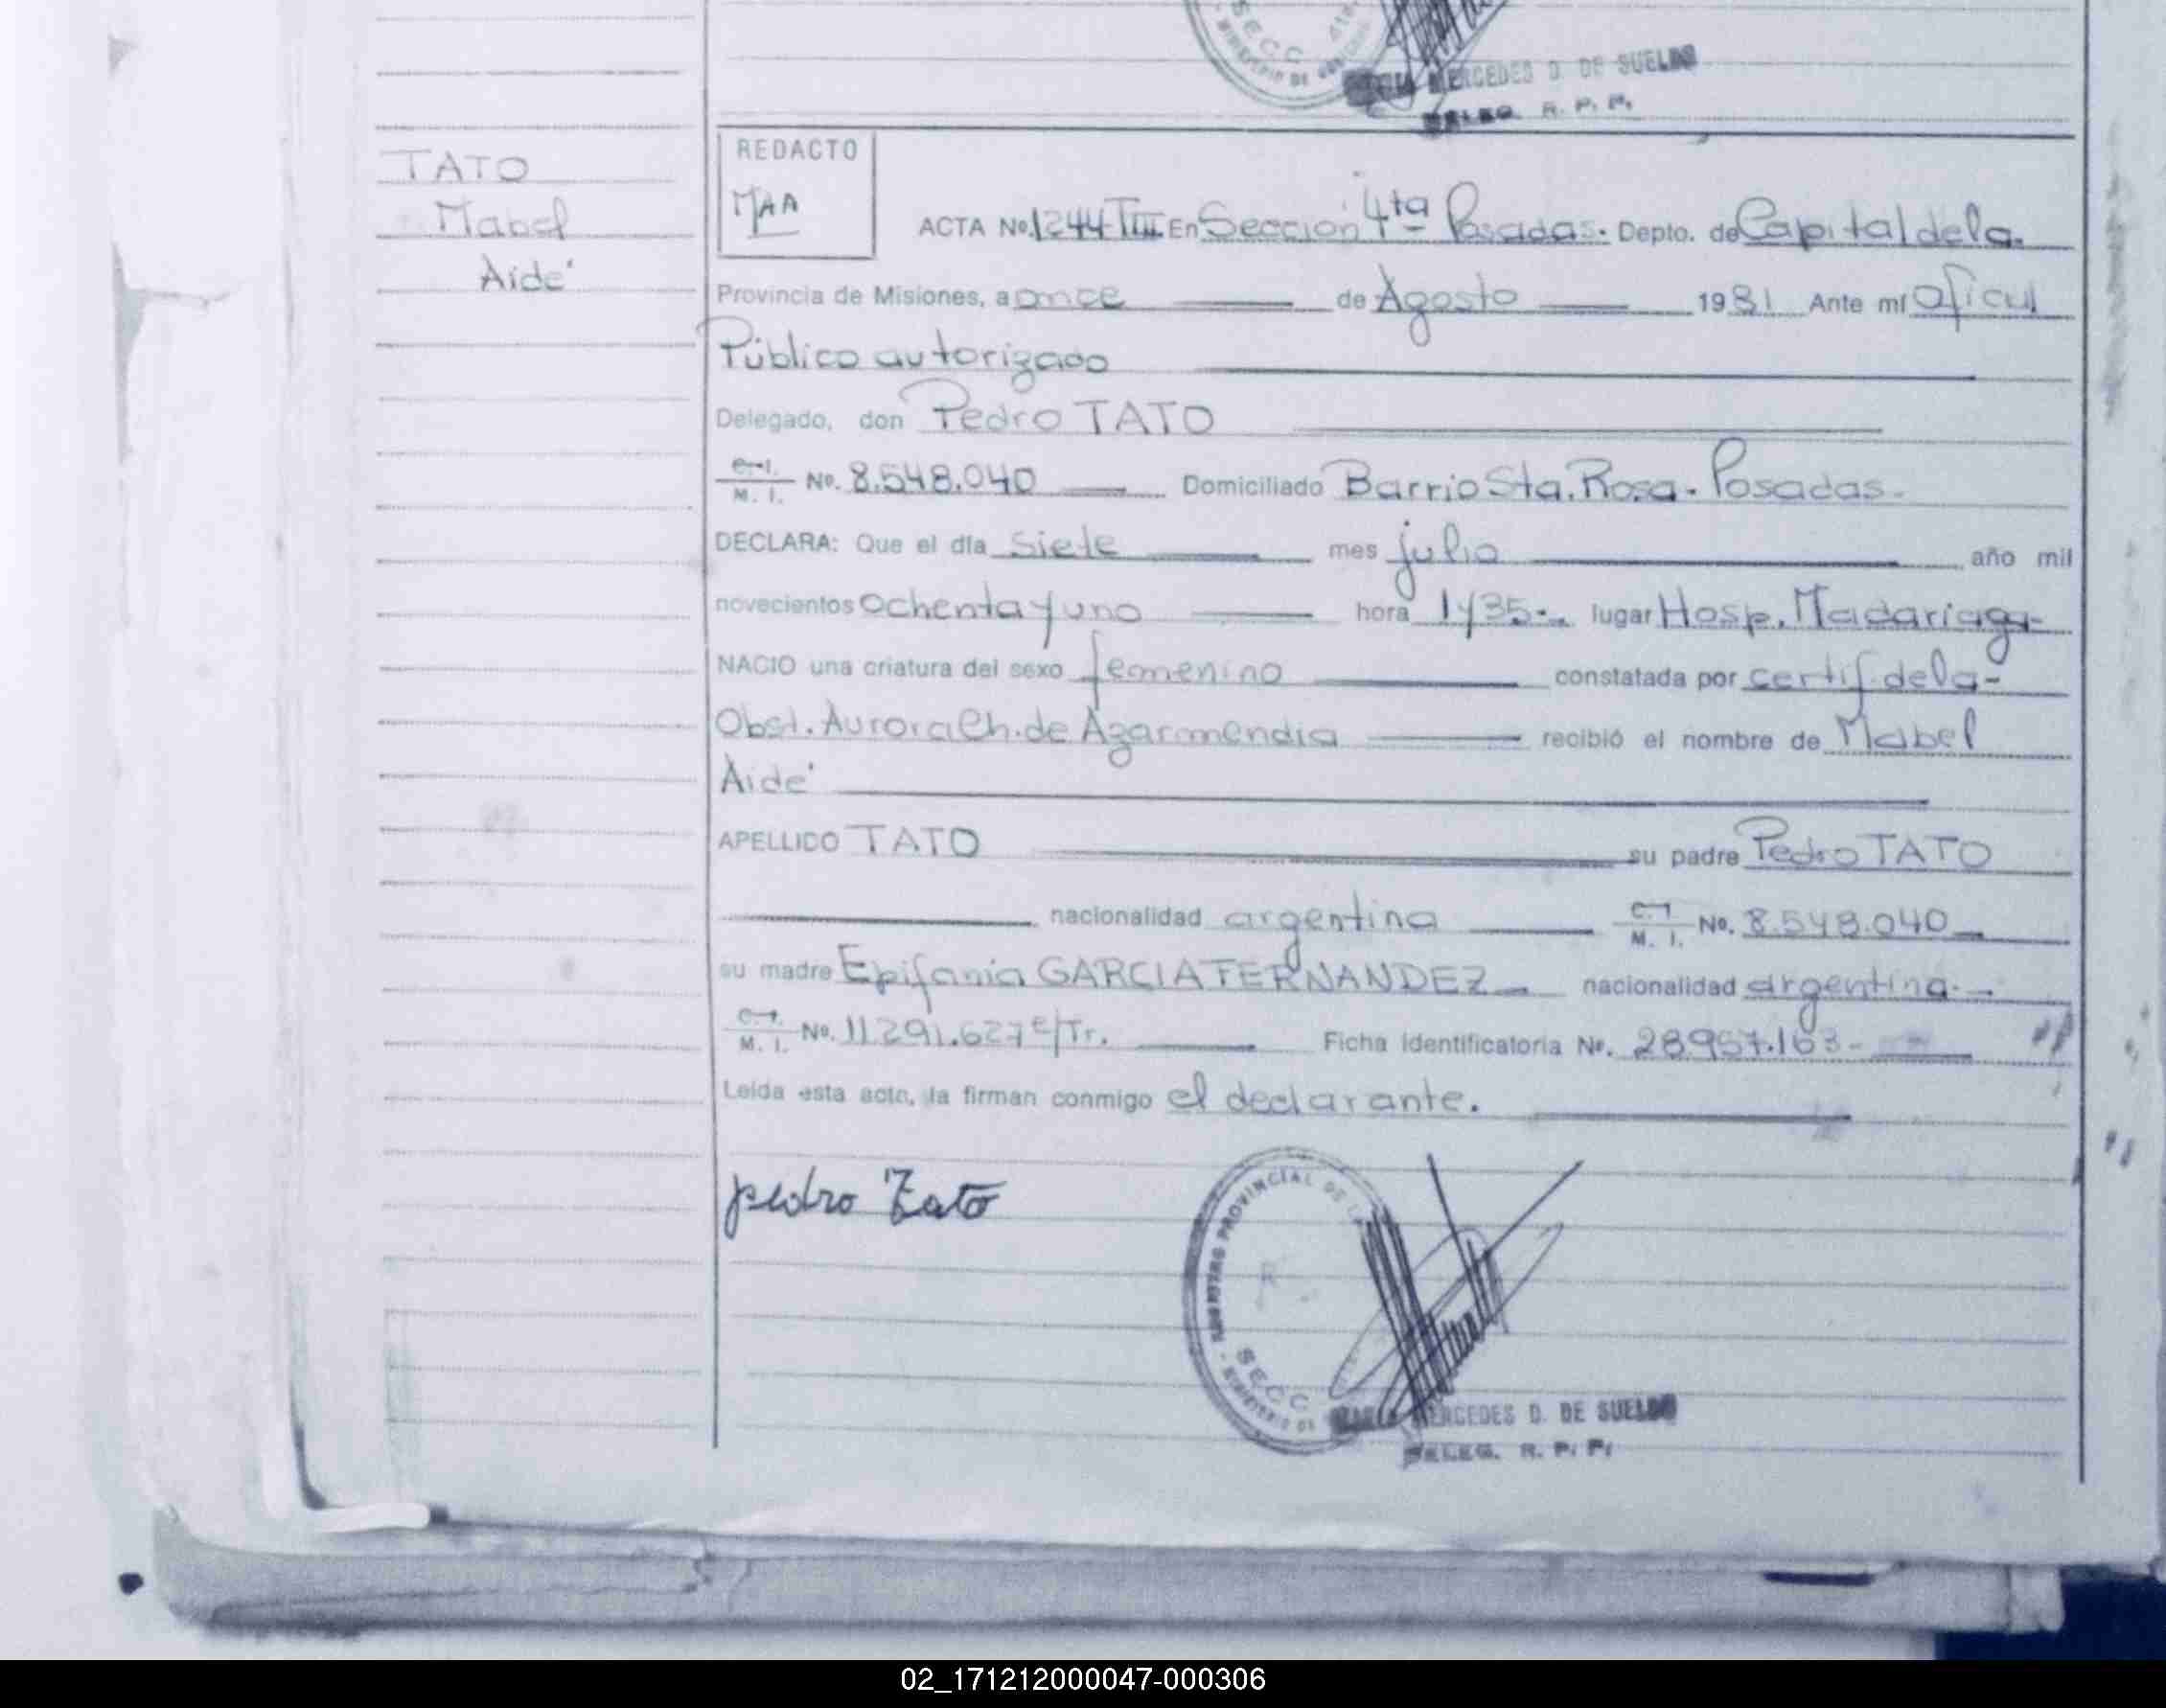 SECC
MERCEDES D. DE SUELDO
DELEG. R. P. P.
TATO
Mabel
Aidé
REDACTO
MAA
ACTA No. 1244-TIII En Sección 4ta Posadas. Depto. de Capital de la
Provincia de Misiones, a once de Agosto 1981 Ante mí Oficial
Público autorizado
Delegado, don Pedro TATO
C.I. M. I. No. 8.548.040 Domiciliado Barrio Sta. Rosa. Posadas.
DECLARA: Que el día siete mes julio año mil
novecientos ochenta y uno hora 1y35 lugar Hosp. Madariaga
NACIO una criatura del sexo femenino constatada por certif. de la
Obst. Aurora Ch. de Azarmendia recibió el nombre de Mabel
Aidé
APELLIDO TATO su padre Pedro TATO
nacionalidad argentina C.I. M. I. No. 8.548.040
su madre Epifania GARCIA FERNANDEZ nacionalidad argentina.
C.I. M. I. No. 11.291.627 e/Tr. Ficha identificatoria No. 28.957.163
Leída esta acta, la firman conmigo el declarante.
pedro Tato
REGISTRO PROVINCIAL DE L
SECC
MINISTERIO DE
MERCEDES D. DE SUELDO
DELEG. R. P. P.
02_171212000047-000306